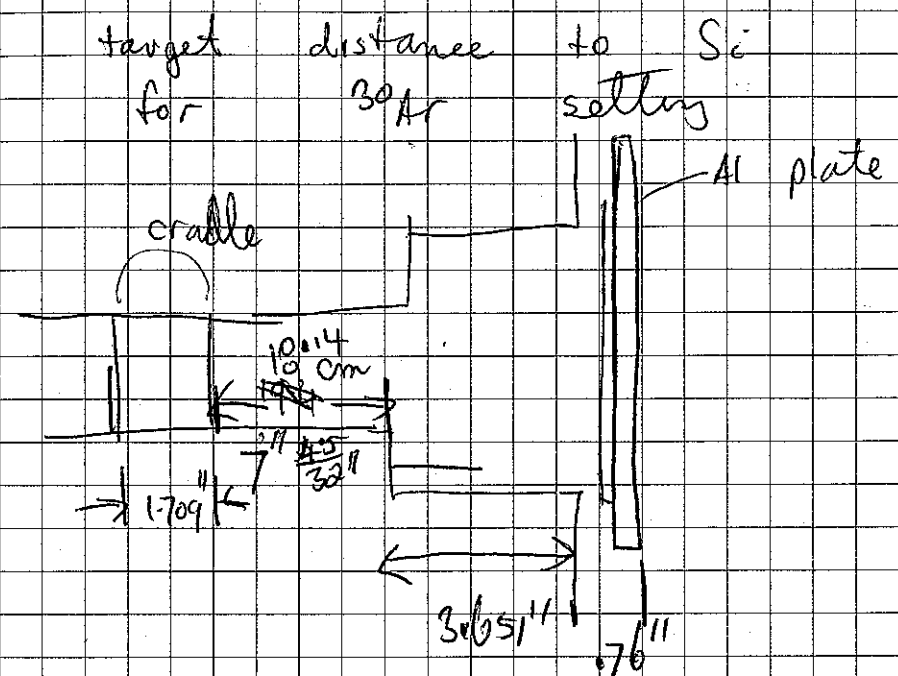 target distance to Si
for ³⁰Ar setting
Al plate
cradle
10.14
cm
7"
/32"
1.709"
3.651"
.76"